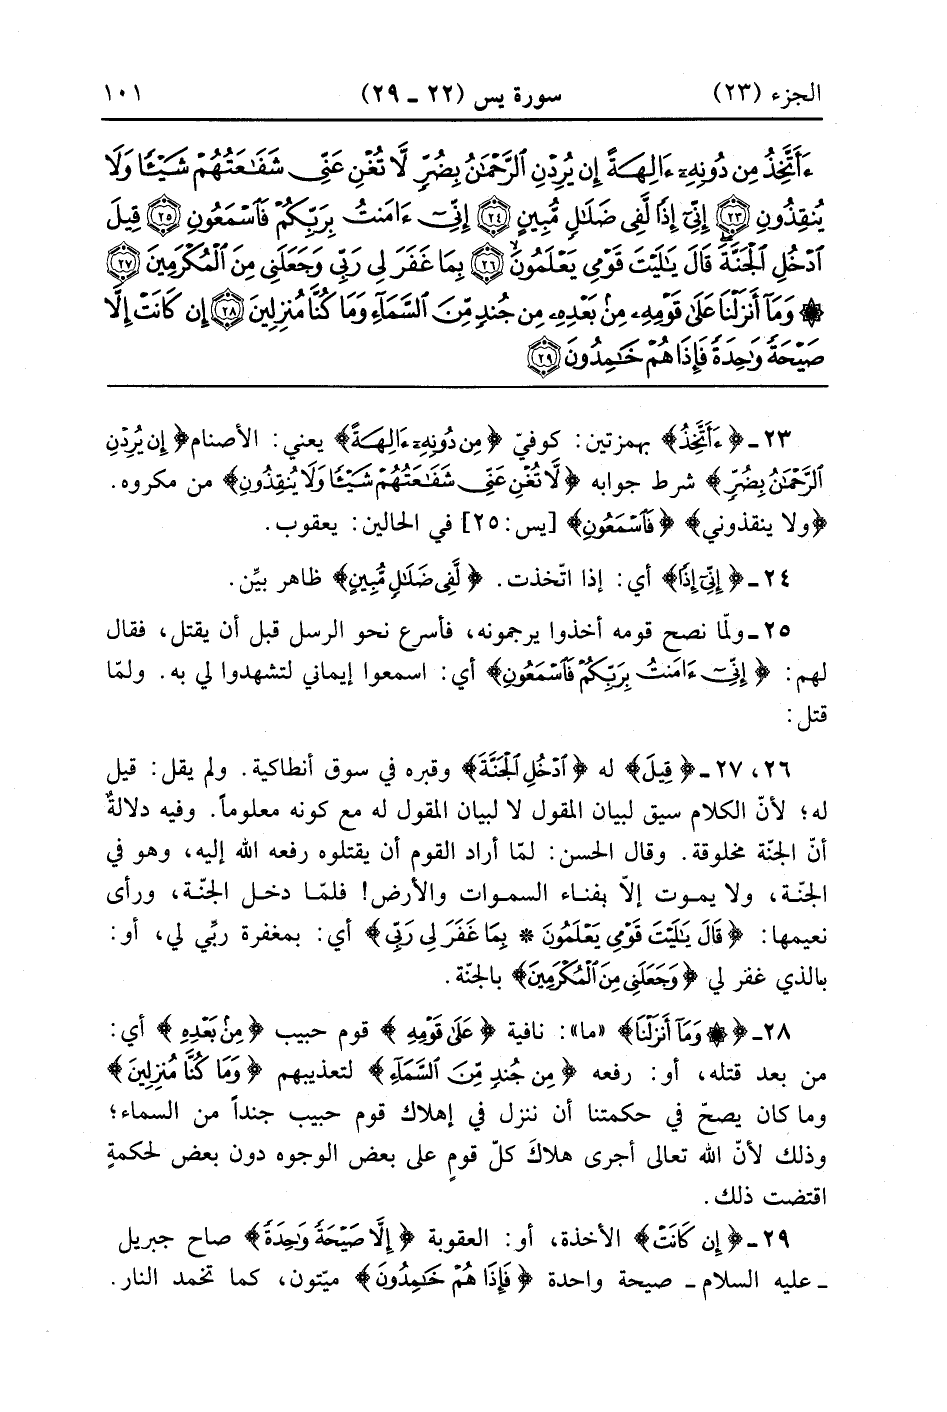 الجزء (٢٣) سورة يس (٢٢ ـ ٢٩) ١٠١
ءَأَتَّخِذُ مِن دُونِهِۦٓ ءَالِهَةً إِن يُرِدْنِ ٱلرَّحْمَٰنُ بِضُرٍّ لَّا تُغْنِ عَنِّى شَفَٰعَتُهُمْ شَيْـًٔا وَلَا
يُنقِذُونِ ﴿٢٣﴾ إِنِّىٓ إِذًا لَّفِى ضَلَٰلٍ مُّبِينٍ ﴿٢٤﴾ إِنِّىٓ ءَامَنتُ بِرَبِّكُمْ فَٱسْمَعُونِ ﴿٢٥﴾ قِيلَ
ٱدْخُلِ ٱلْجَنَّةَ قَالَ يَٰلَيْتَ قَوْمِى يَعْلَمُونَ ﴿٢٦﴾ بِمَا غَفَرَ لِى رَبِّى وَجَعَلَنِى مِنَ ٱلْمُكْرَمِينَ ﴿٢٧﴾
۞ وَمَآ أَنزَلْنَا عَلَىٰ قَوْمِهِۦ مِنۢ بَعْدِهِۦ مِن جُندٍ مِّنَ ٱلسَّمَآءِ وَمَا كُنَّا مُنزِلِينَ ﴿٢٨﴾ إِن كَانَتْ إِلَّا
صَيْحَةً وَٰحِدَةً فَإِذَا هُمْ خَٰمِدُونَ ﴿٢٩﴾
٢٣ ـ ﴿ءَأَتَّخِذُ﴾ بهمزتين: كوفيّ ﴿مِن دُونِهِۦٓ ءَالِهَةً﴾ يعني: الأصنام ﴿إِن يُرِدْنِ
ٱلرَّحْمَٰنُ بِضُرٍّ﴾ شرط جوابه ﴿لَّا تُغْنِ عَنِّى شَفَٰعَتُهُمْ شَيْـًٔا وَلَا يُنقِذُونِ﴾ من مكروه.
﴿ولا ينقذوني﴾ ﴿فَٱسْمَعُونِ﴾ [يس: ٢٥] في الحالين: يعقوب.
٢٤ ـ ﴿إِنِّىٓ إِذًا﴾ أي: إذا اتّخذت. ﴿لَّفِى ضَلَٰلٍ مُّبِينٍ﴾ ظاهر بيِّن.
٢٥ ـ ولمّا نصح قومه أخذوا يرجمونه، فأسرع نحو الرسل قبل أن يقتل، فقال
لهم: ﴿إِنِّىٓ ءَامَنتُ بِرَبِّكُمْ فَٱسْمَعُونِ﴾ أي: اسمعوا إيماني لتشهدوا لي به. ولمّا
قتل:
٢٦، ٢٧ ـ ﴿قِيلَ﴾ له ﴿ٱدْخُلِ ٱلْجَنَّةَ﴾ وقبره في سوق أنطاكية. ولم يقل: قيل
له؛ لأنّ الكلام سيق لبيان المقول لا لبيان المقول له مع كونه معلوماً. وفيه دلالةٌ
أنّ الجنّة مخلوقة. وقال الحسن: لمّا أراد القوم أن يقتلوه رفعه الله إليه، وهو في
الجنّة، ولا يموت إلاّ بفناء السموات والأرض! فلمّا دخل الجنّة، ورأى
نعيمها: ﴿قَالَ يَٰلَيْتَ قَوْمِى يَعْلَمُونَ * بِمَا غَفَرَ لِى رَبِّى﴾ أي: بمغفرة ربِّي لي، أو:
بالذي غفر لي ﴿وَجَعَلَنِى مِنَ ٱلْمُكْرَمِينَ﴾ بالجنّة.
٢٨ ـ ﴿۞ وَمَآ أَنزَلْنَا﴾ «ما»: نافية ﴿عَلَىٰ قَوْمِهِ﴾ قوم حبيب ﴿مِنۢ بَعْدِهِ﴾ أي:
من بعد قتله، أو: رفعه ﴿مِن جُندٍ مِّنَ ٱلسَّمَآءِ﴾ لتعذيبهم ﴿وَمَا كُنَّا مُنزِلِينَ﴾
وما كان يصحّ في حكمتنا أن ننزل في إهلاك قوم حبيب جنداً من السماء؛
وذلك لأنّ الله تعالى أجرى هلاكَ كلّ قومٍ على بعض الوجوه دون بعض لحكمةٍ
اقتضت ذلك.
٢٩ ـ ﴿إِن كَانَتْ﴾ الأخذة، أو: العقوبة ﴿إِلَّا صَيْحَةً وَٰحِدَةً﴾ صاح جبريل
ـ عليه السلام ـ صيحة واحدة ﴿فَإِذَا هُمْ خَٰمِدُونَ﴾ ميّتون، كما تخمد النار.